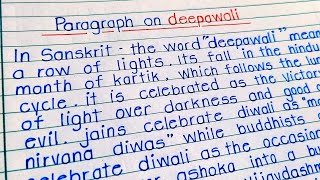 Paragraph on deepawali
In Sanskrit - the word "deepawali" mean
a row of lights. Its fall in the hindu
month of kartik. which follows the lun
cycle. it is celebrated as the victory
of light over darkness and good o
evil. jains celebrate diwali as "ma
nirvana diwas" while buddhists c
celebrate diwali as the occasion
ashoka into a bu
vijaydashm